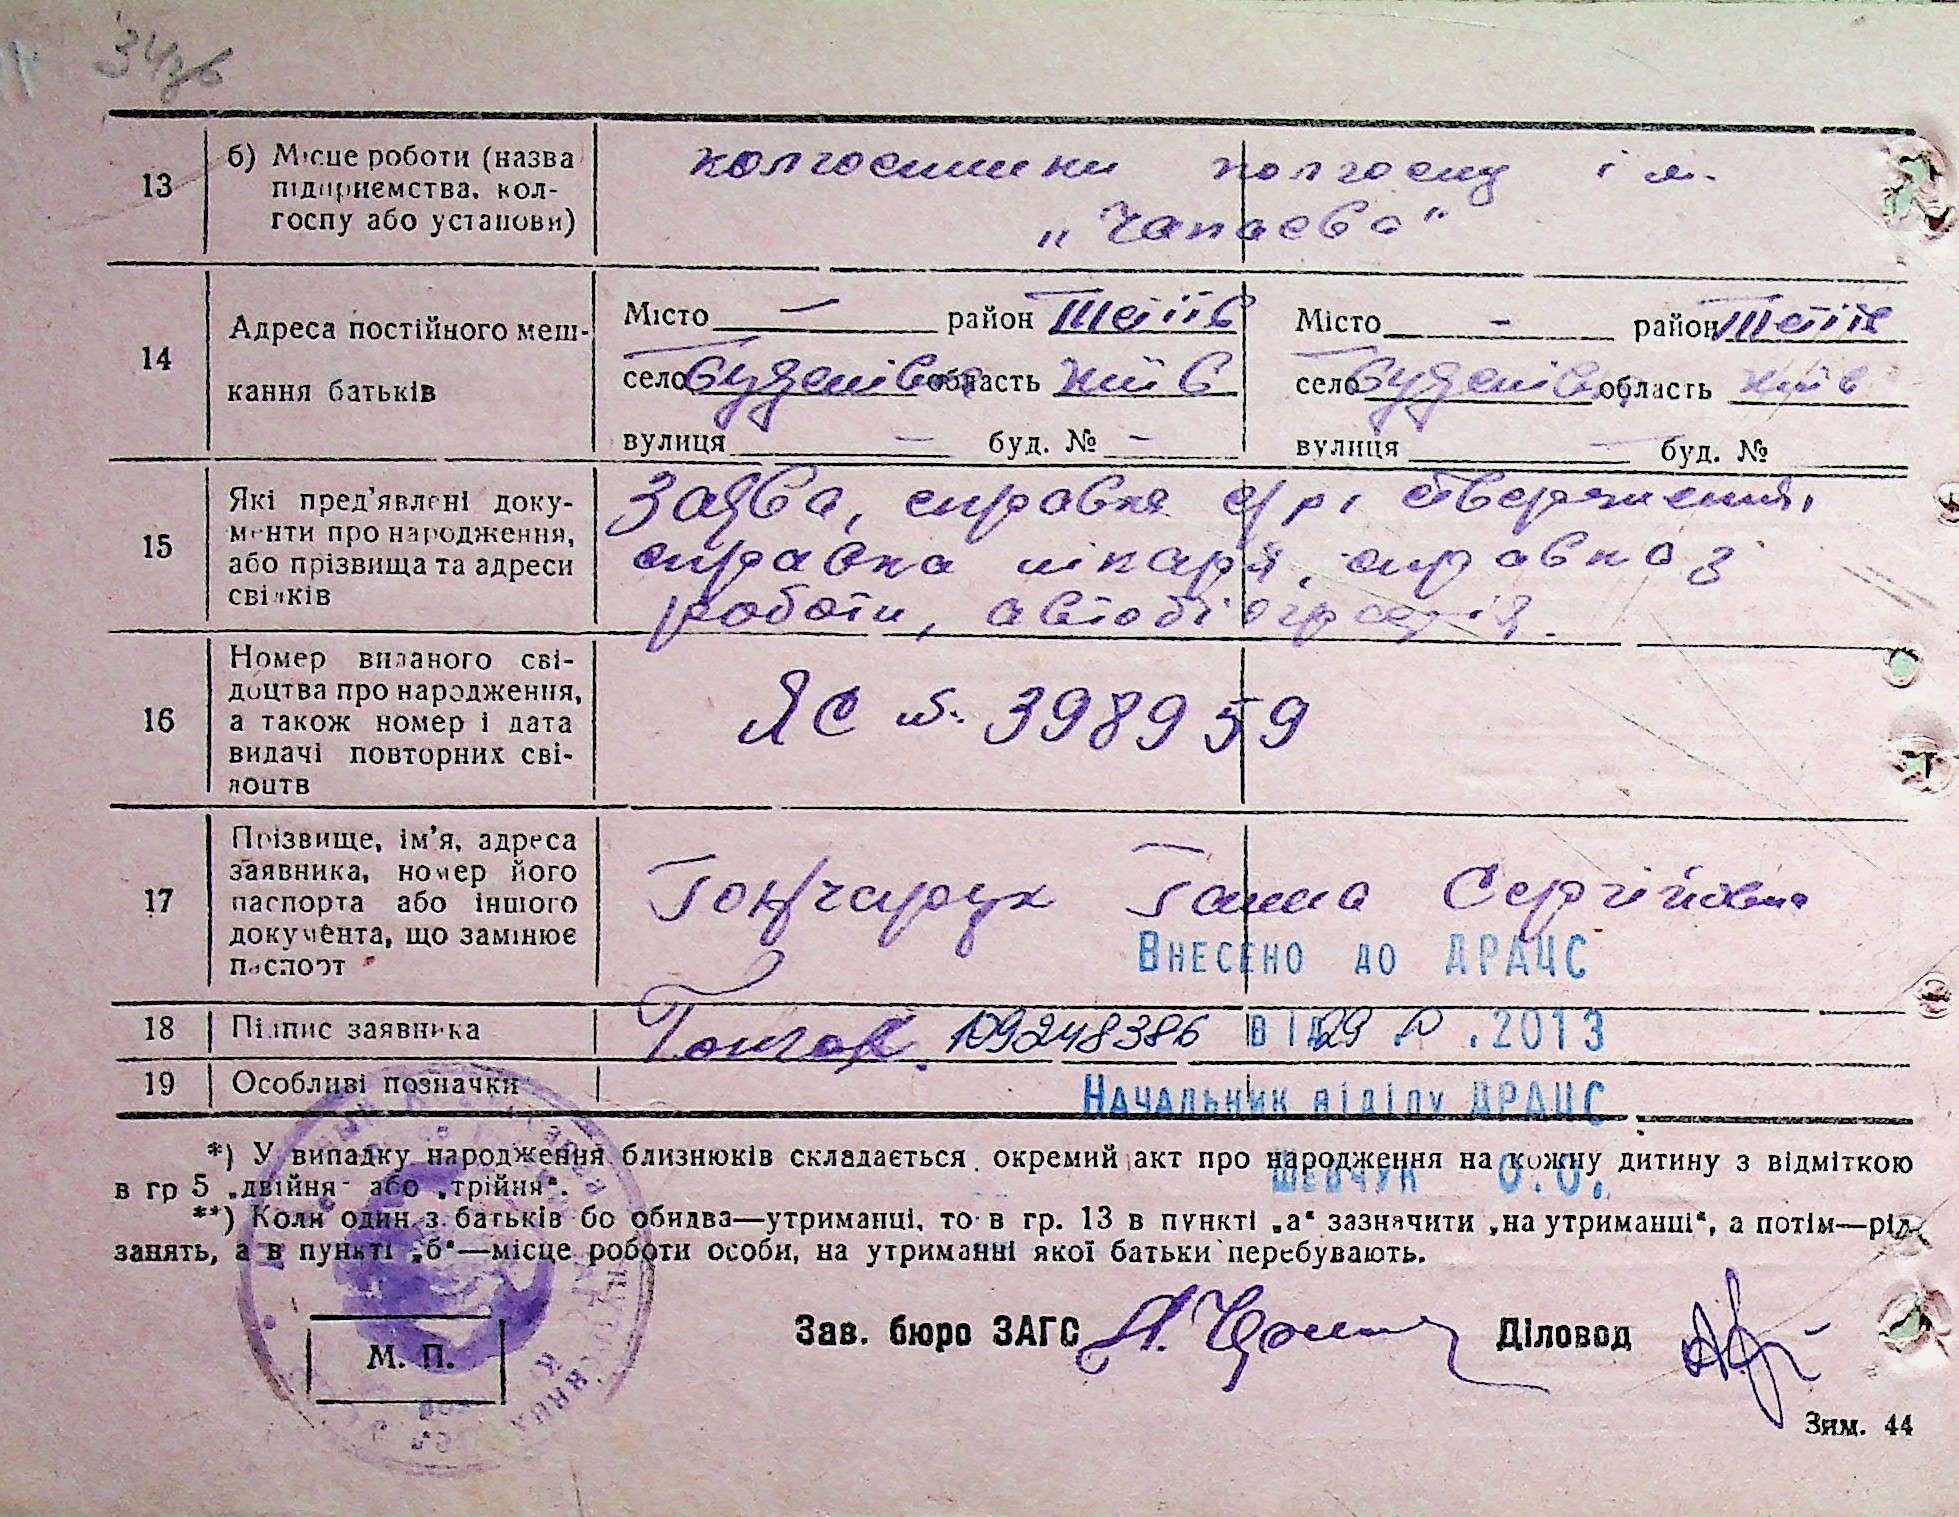 34зв
13
б) Місце роботи (назва
підприємства, кол-
госпу або установи)
колгоспники колгоспу ім.
„Чапаєва"
14
Адреса постійного меш-
кання батьків
Місто — район Тетіїв
село Буденівка область Київ
вулиця — буд. № —
Місто - район Тетіїв
село Буденівка область Київ
вулиця — буд. №
15
Які пред'явлені доку-
менти про народження,
або прізвища та адреси
свідків
Заява, справка с/рі ствержения,
справка лікаря, справка з
роботи, автобіографія.
16
Номер виданого сві-
доцтва про народження,
а також номер і дата
видачі повторних сві-
доцтв
ЯС № 398959
17
Прізвище, ім'я, адреса
заявника, номер його
паспорта або іншого
документа, що замінює
паспорт
Гончарук Ганна Сергіївна
Внесено до ДРАЦС
18
Підпис заявника
Гончар. 109248386 від 29 .2013
19
Особливі позначки
Начальник відділу ДРАЦС
*) У випадку народження близнюків складається окремий акт про народження на кожну дитину з відміткою
в гр 5 „двійня" або „трійня".
Шевчук О.О.
**) Коли один з батьків бо обидва—утриманці, то в гр. 13 в пункті „а" зазначити „на утриманці", а потім—рід
занять, а в пункті „б"—місце роботи особи, на утриманні якої батьки перебувають.
Зав. бюро ЗАГС
Діловод
М. П.
Зим. 44